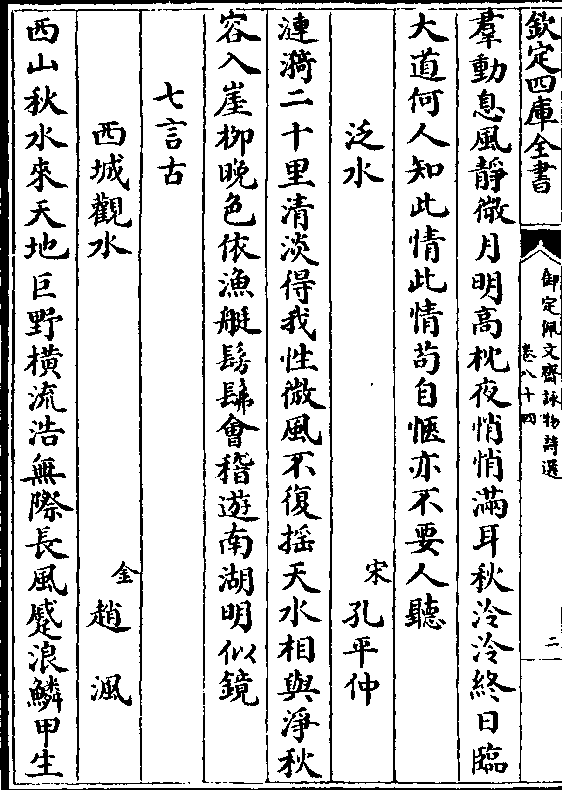 欽定四庫全書
御定佩文齋詠物詩選
卷八十四
二
羣動息風靜微月明高枕夜悄悄滿耳秋泠泠終日臨
大道何人知此情此情苟自愜亦不要人聽
泛水
宋
孔平仲
漣漪二十里清淡得我性微風不復揺天水相與淨秋
容入崖柳晚色依漁艇髣髴會稽遊南湖明似鏡
七言古
西城觀水
金
趙渢
西山秋水來天地巨野横流浩無際長風蹙浪鱗甲生